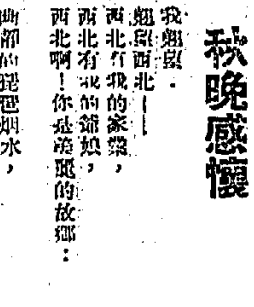 秋晚感懷
我翹望．
翹望西北——
西北有我的家鄉，
西北有我的爺娘，
西北啊！你是美麗的故鄉：
的琵琶烟水，